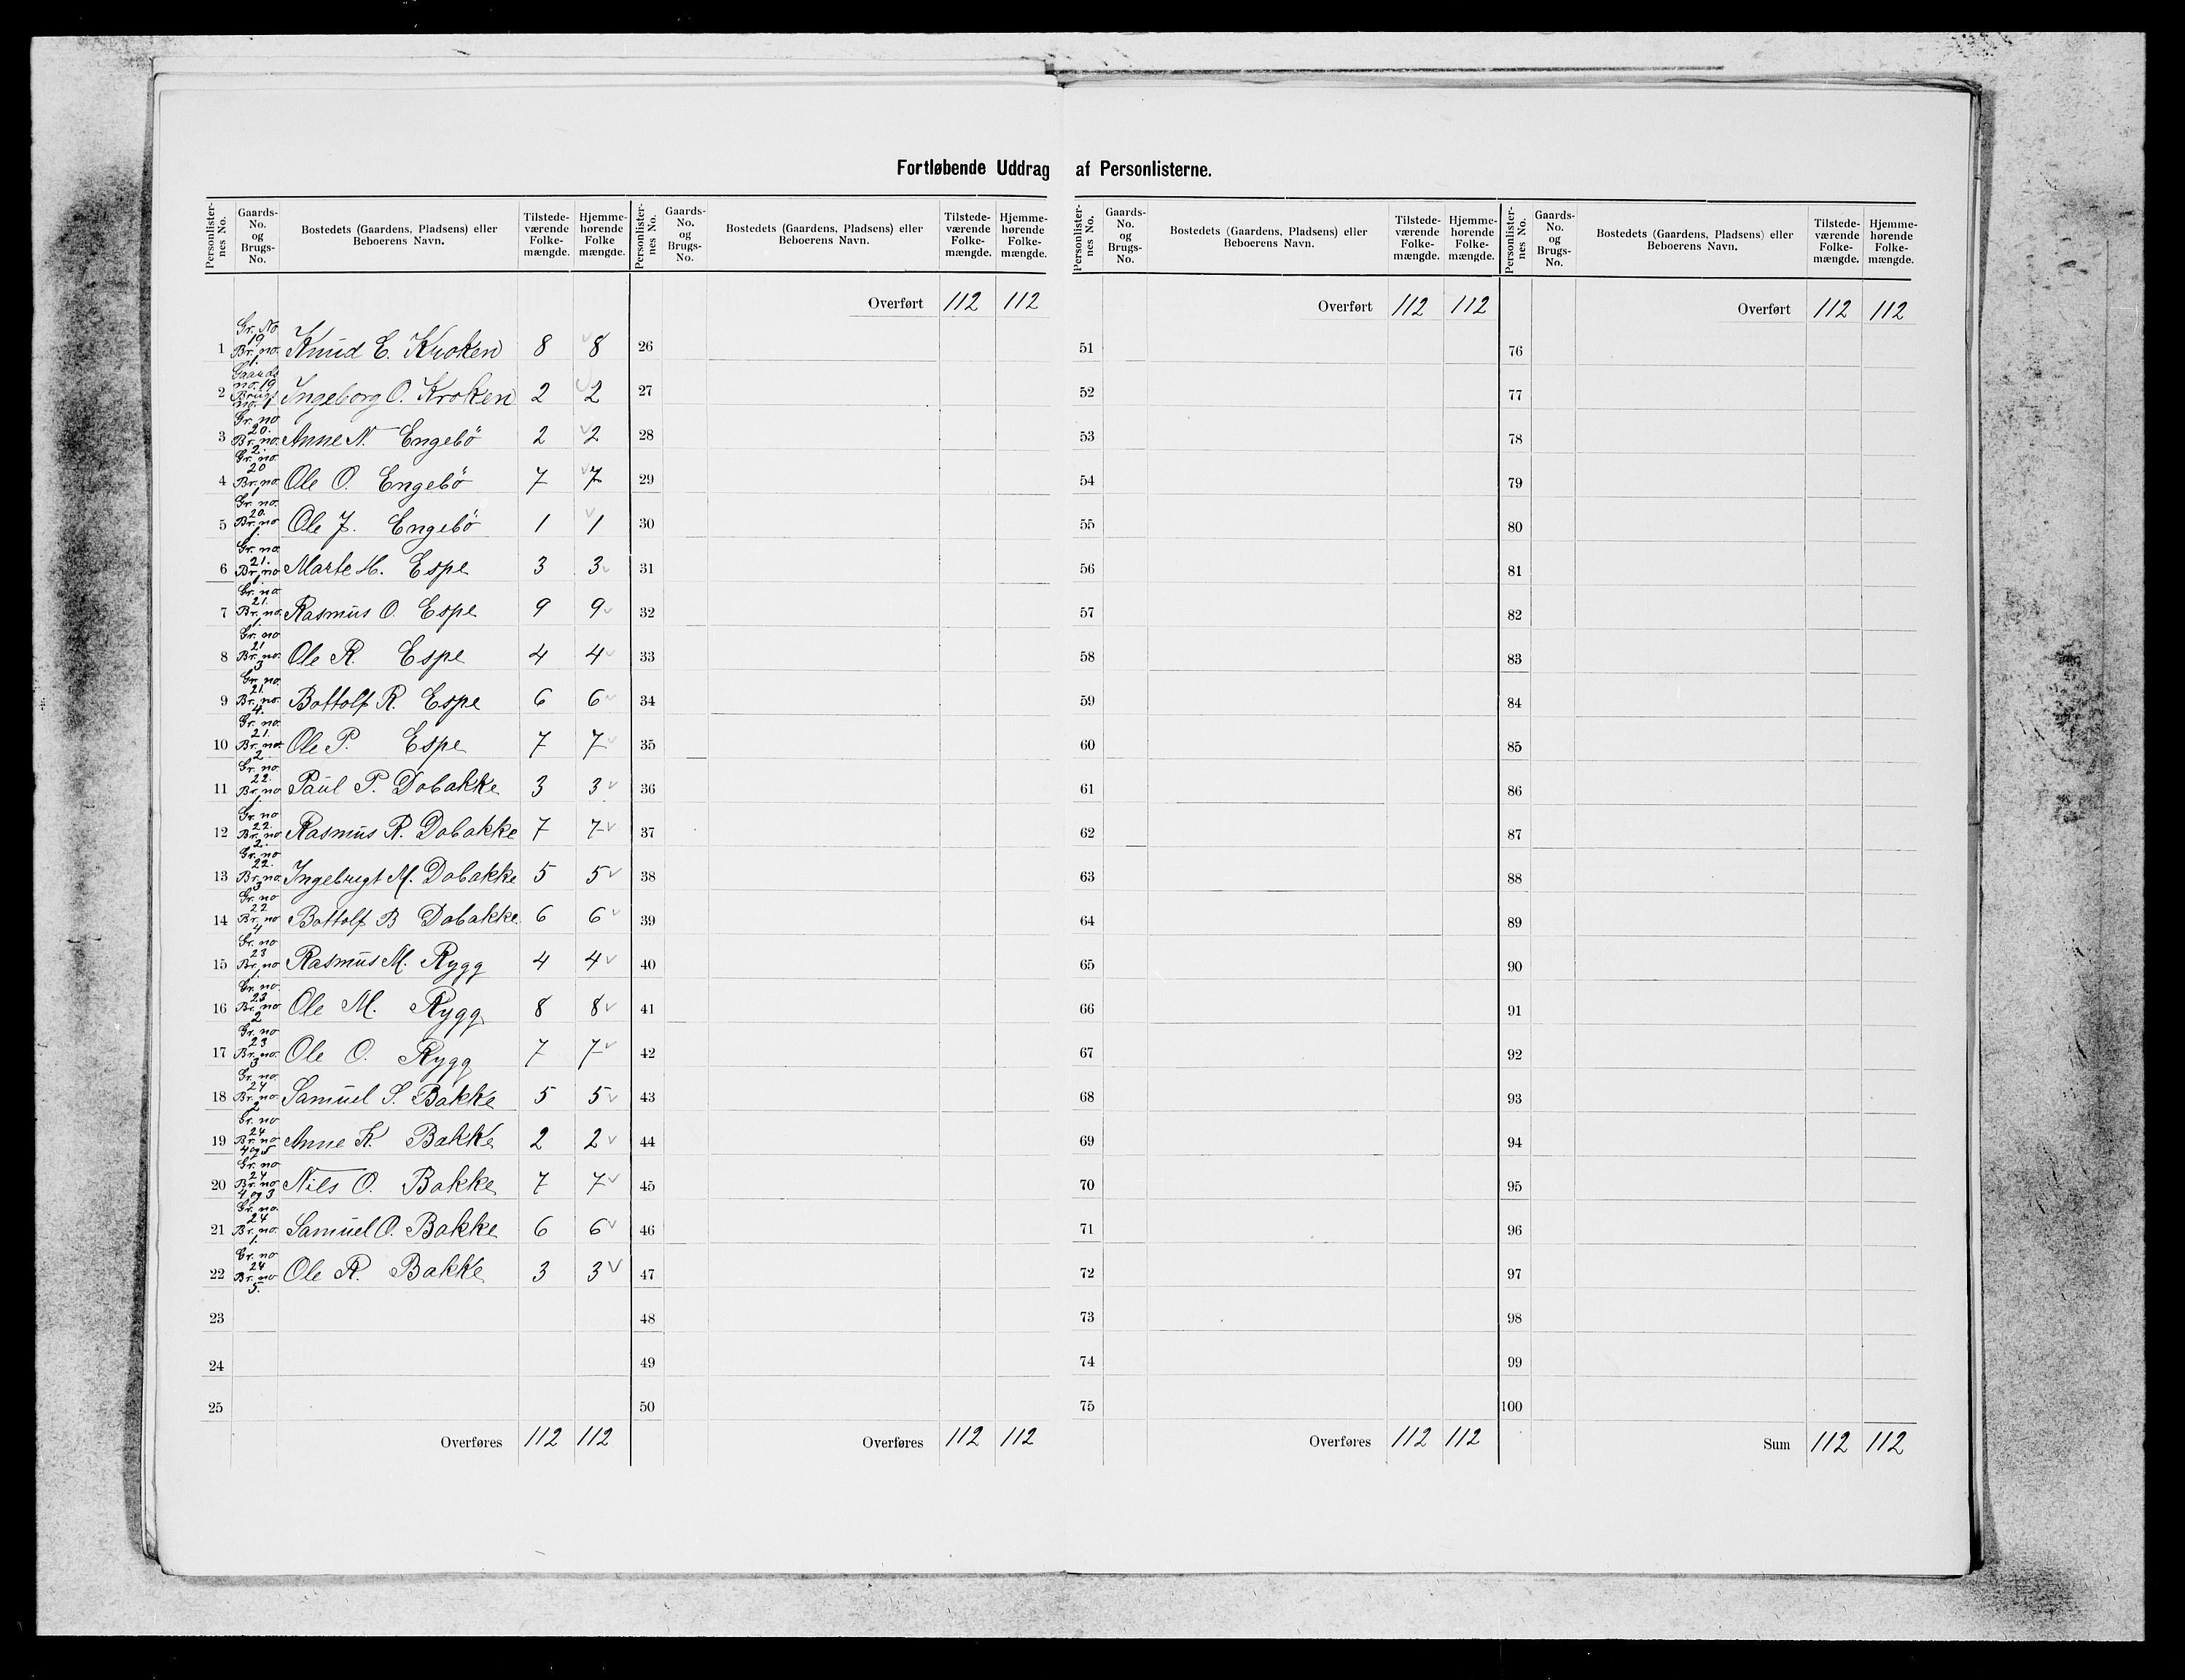 Fortløbende Uddrag af Personlisterne.
Personlisternes No. Gaards-No. og Brugs-No. Bostedets (Gaardens, Pladsens) eller Beboerens Navn. Tilstedeværende Folkemængde. Hjemmehørende Folkemængde.
Personlisternes No. Gaards-No. og Brugs-No. Bostedets (Gaardens, Pladsens) eller Beboerens Navn. Tilstedeværende Folkemængde. Hjemmehørende Folkemængde.
Personlisternes No. Gaards-No. og Brugs-No. Bostedets (Gaardens, Pladsens) eller Beboerens Navn. Tilstedeværende Folkemængde. Hjemmehørende Folkemængde.
Personlisternes No. Gaards-No. og Brugs-No. Bostedets (Gaardens, Pladsens) eller Beboerens Navn. Tilstedeværende Folkemængde. Hjemmehørende Folkemængde.
Overført 112 112 Overført 112 112 Overført 112 112
1 Gr. No 19 Br. no. 1. Knud E. Kroken 8 8 26 51 76
2 Gaards no. 19 Brugs no. 1 Ingeborg O. Kroken 2 2 27 52 77
3 Gr. no 20. Br. no. 2. Anne N. Engebö 2 2 28 53 78
4 Gr. no. 20 Br. no. 1 Ole O. Engebö 7 7 29 54 79
5 Gr. no. 20. Br. no 1. Ole J. Engebö 1 1 30 55 80
6 Gr. no. 21. Br. no 1. Marte H. Espe 3 3 31 56 81
7 Gr. no 21. Br. no. 1. Rasmus O. Espe 9 9 32 57 82
8 Gr. no 21 Br. no. 3 Ole R. Espe 4 4 33 58 83
9 Gr. no. 21. Br. no. 4. Bottolf R. Espe 6 6 34 59 84
10 Gr. no. 21. Br. no. 2 Ole P. Espe 7 7 35 60 85
11 Gr. no. 22. Br. no 1. Paul P. Dobakke 3 3 36 61 86
12 Gr. no 22. Br. no 2. Rasmus R. Dobakke 7 7 37 62 87
13 Gr. no 22. Br. no. 3 Ingebrigt M. Dobakke 5 5 38 63 88
14 Gr. no 22 Br. no 4 Bottolf B Dobakke. 6 6 39 64 89
15 Gr. no 23 Br. no 1. Rasmus M. Rygg 4 4 40 65 90
16 Gr. no. 23 Br. no 2 Ole M. Rygg 8 8 41 66 91
17 Gr. no 23 Br. no. 3 Ole O. Rygg 7 7 42 67 92
18 Gr. no. 24 Br. no. 2 Samuel S. Bakke 5 5 43 68 93
19 Gr. no 24 Br. no 4 og 5 Anne K Bakke 2 2 44 69 94
20 Gr. no 24 Br. no 4 og 3 Nils O. Bakke 7 7 45 70 95
21 Gr. no. 24 Br. no. 1. Samuel O. Bakke 6 6 46 71 96
22 Gr. no 24 Br. no 5. Ole R. Bakke 3 3 47 72 97
23 48 73 98
24 49 74 99
25 50 75 100
Overføres 112 112 Overføres 112 112 Overføres 112 112 Sum 112 112